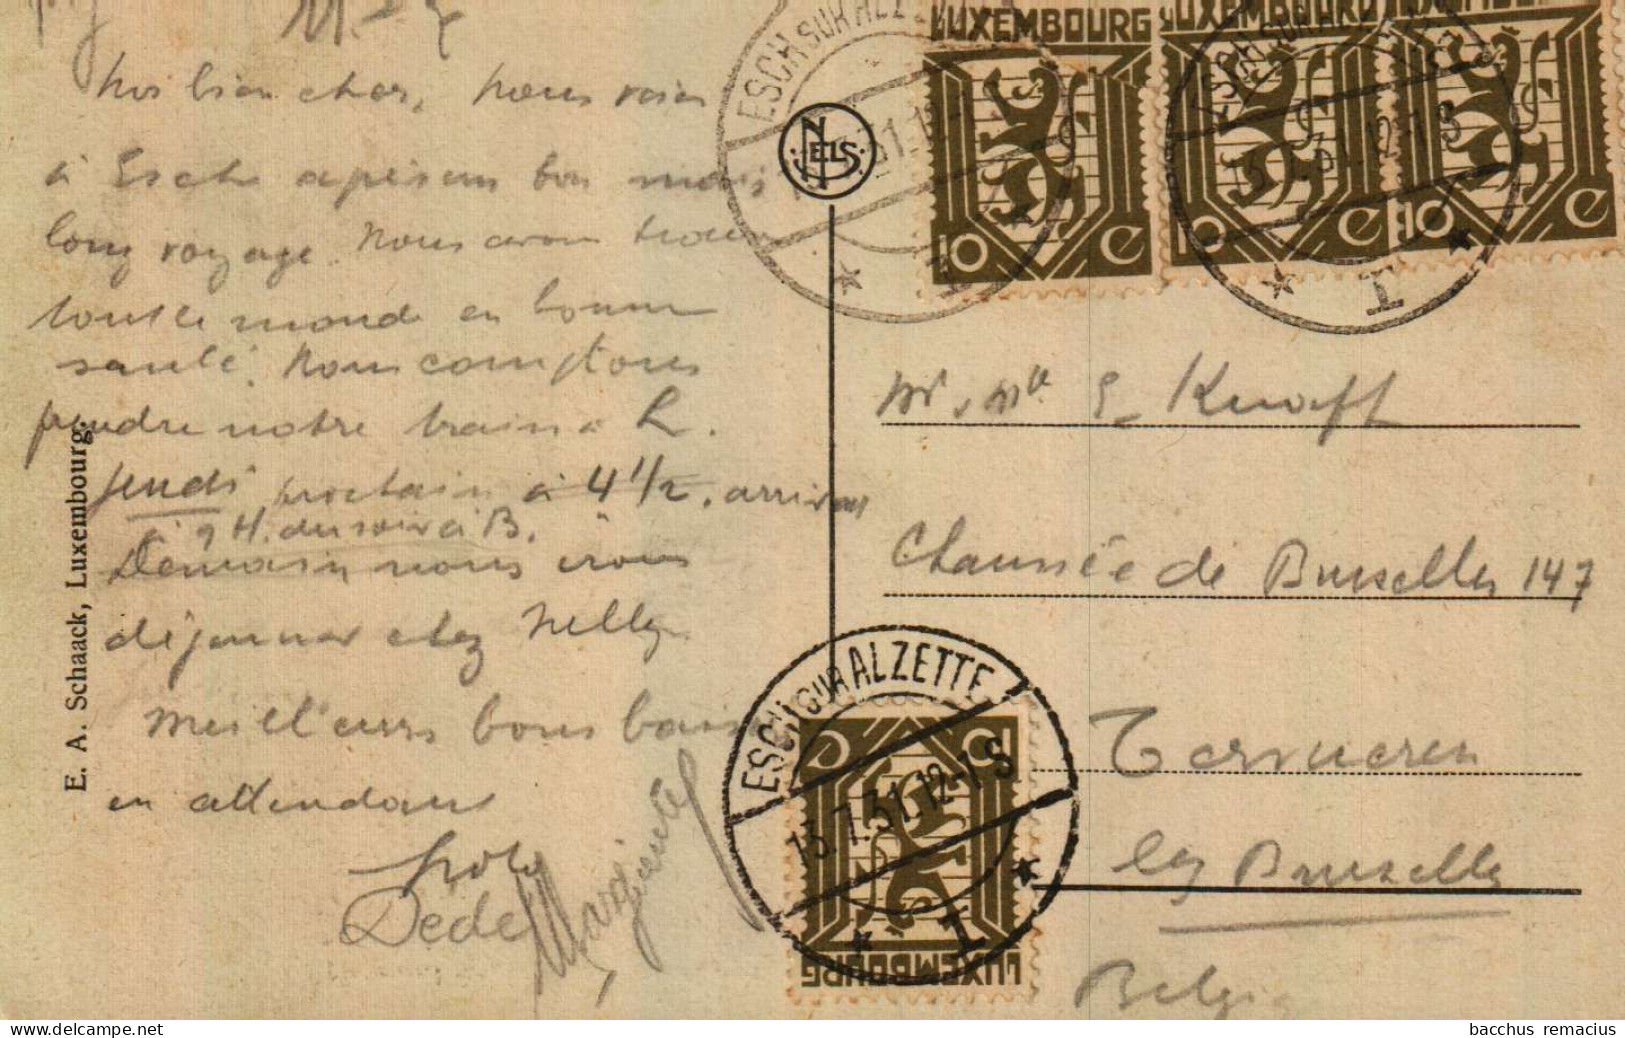 Nos bien chers, nous voici
à Esch après un bon mais
long voyage. Nous avons trouvé
tout le monde en bonne
santé. Nous comptons
prendre notre train à L.
jeudi prochain à 4 1/2, arrivons
à 9 H. du soir à B.
Demain nous irons
déjeuner chez Nelly.
Meilleurs bons baisers
en attendant
Dédé
Marguerite
E. A. Schaack, Luxembourg.
NELS
LUXEMBOURG
10 C
LUXEMBOURG
10 C
LUXEMBOURG
10 C
ESCH SUR ALZETTE
13.7.31.12-1 S
ESCH SUR ALZETTE
13.7.31.12-1 S
Mr & Me E. Knaff
Chaussée de Bruxelles 147
Tervueren
lez Bruxelles
Belgique
ESCH SUR ALZETTE
13.7.31.12-1 S
LUXEMBOURG
bacchus remacius